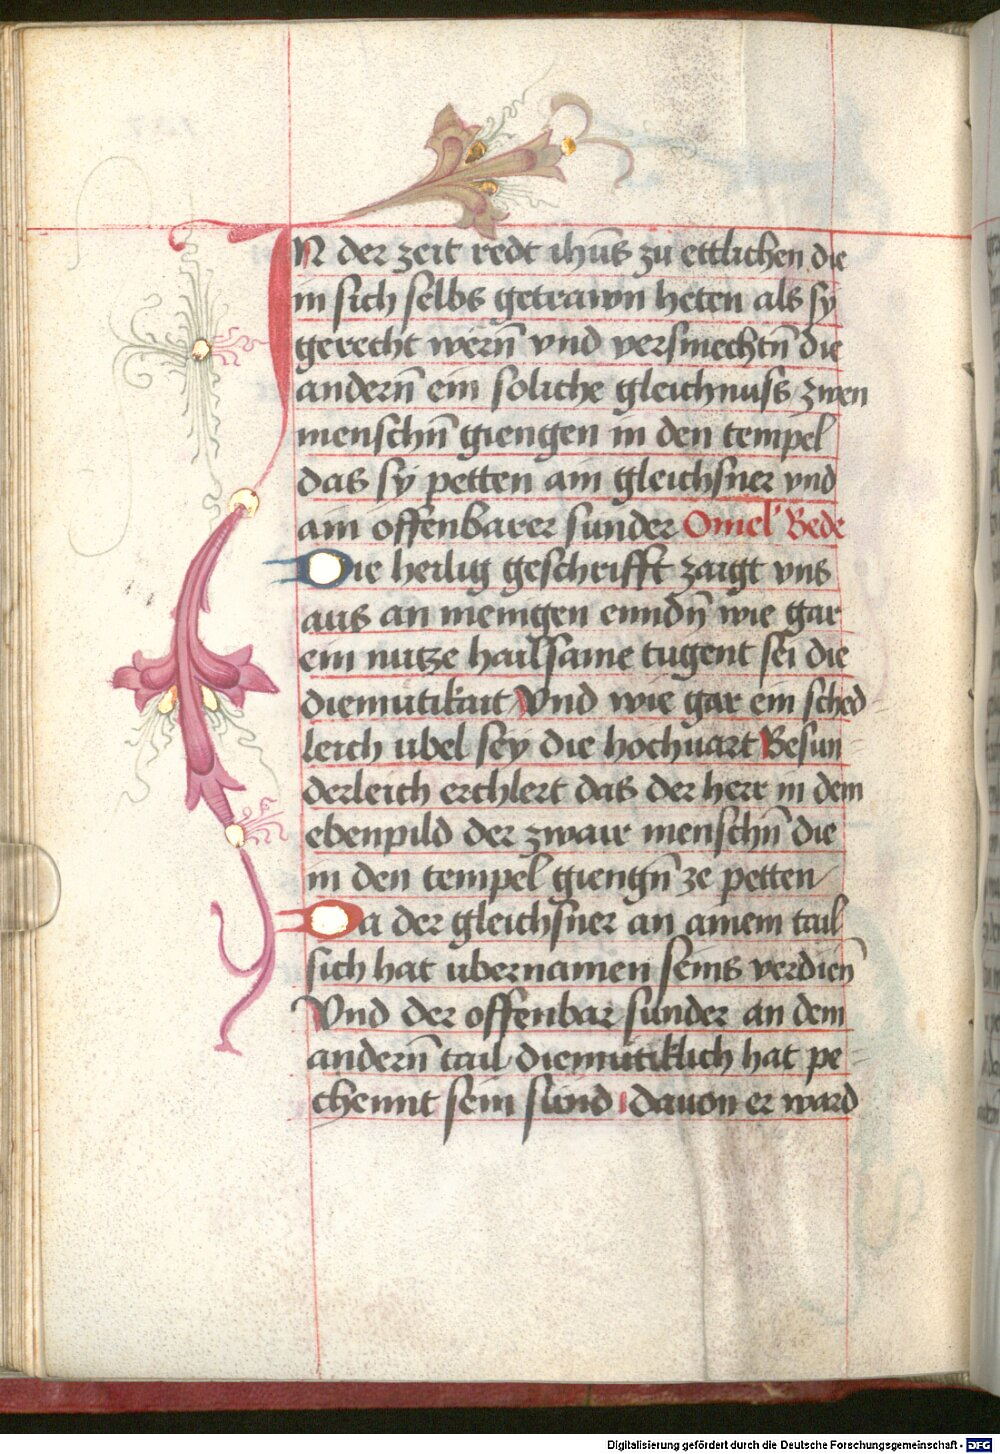 IN der zeit redt ihūs zu ettlichen die
in sich selbs getrawn heten als sy
gerecht wērn̄ vnd versmechtn̄ die
andern̄ ein soliche gleichnuss zwen
menschn̄ giengen in den tempel
das sy petten ain gleichsner vnd
ain offenbarer sunder Omel' Bede
Die heilig geschrifft zaigt vns
aus an menigen enndn̄ wie gar
ein nutze hailsame tugent sei die
diemutikait Vnd wie gar ein sched
leich ubel sey die hochuart Besun-
derleich erchlert das der herr in dem
ebenpild der zwair menschn̄ die
in den tempel giengn̄ ze petten
Da der gleichsner an ainem tail
sich hat ubernamen seins verdien̄
Vnd der offenbar sunder an dem
andern̄ tail diemutiklich hat pe-
chennt sein sünd dauon er ward
Digitalisierung gefördert durch die Deutsche Forschungsgemeinschaft - DFG